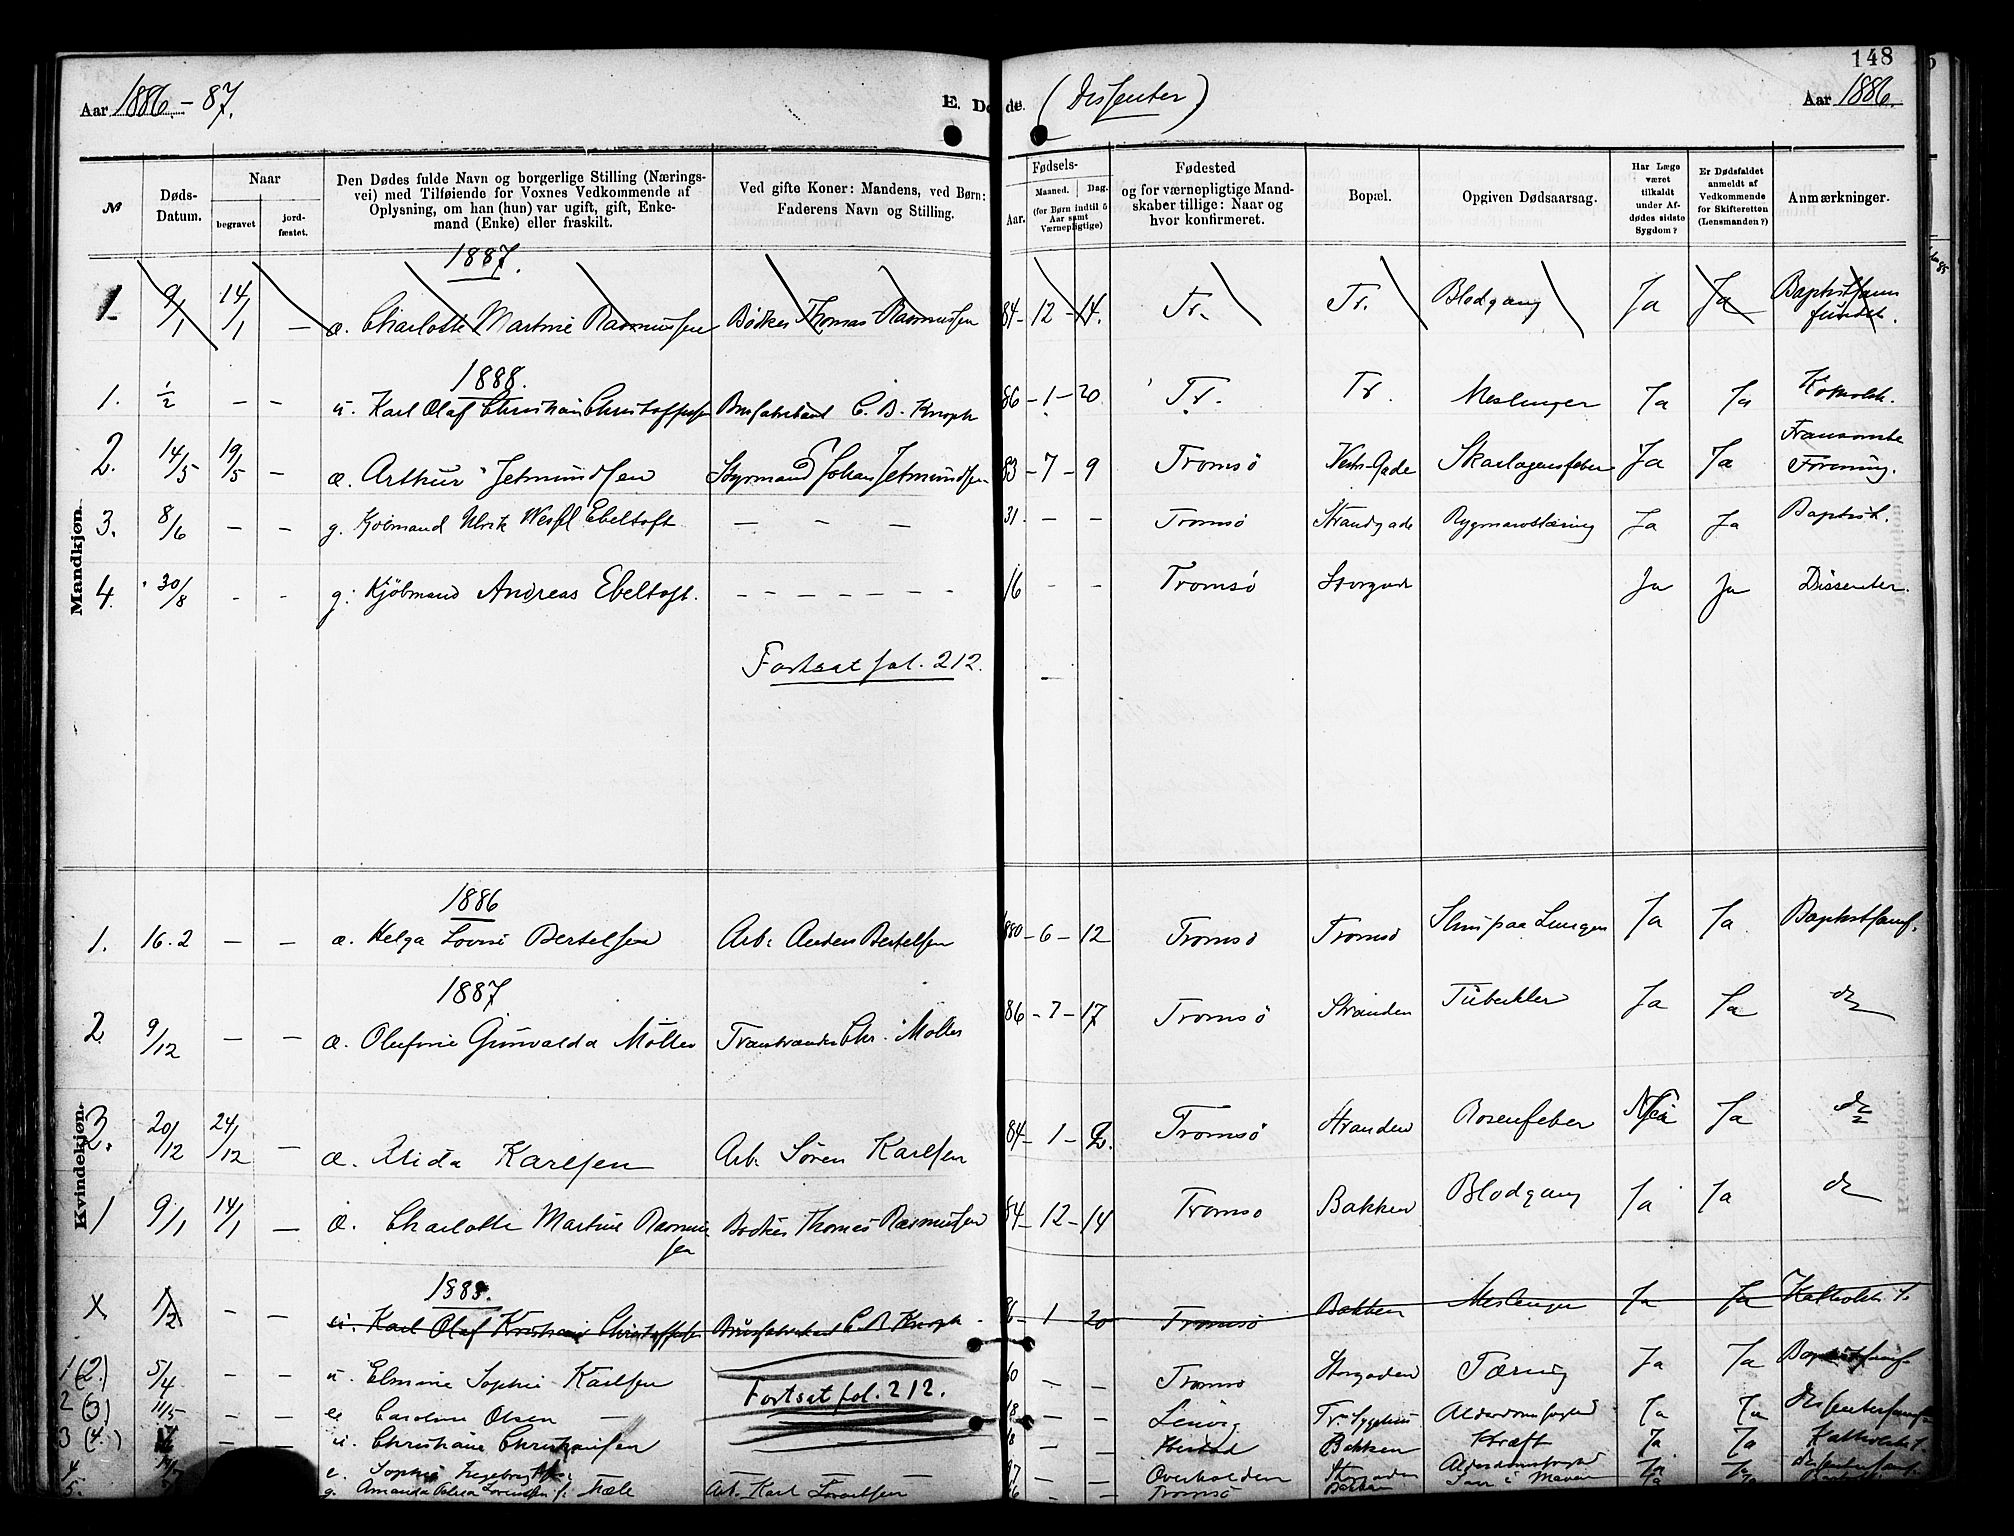 148
Aar 1886 - 87.
E. Døde. (Dissenter)
Aar 1886.
№
Døds-Datum.
Naar
begravet
jord-fæstet.
Den Dødes fulde Navn og borgerlige Stilling (Nærings-
vei) med Tilføiende for Voxnes Vedkommende af
Oplysning, om han (hun) var ugift, gift, Enke-
mand (Enke) eller fraskilt.
Ved gifte Koner: Mandens, ved Børn:
Faderens Navn og Stilling.
Fødsels-
Aar. Maaned. Dag.
(for Børn indtil 5
Aar samt
Værnepligtige)
Fødested
og for værnepligtige Mand-
skaber tillige: Naar og
hvor konfirmeret.
Bopæl.
Opgiven Dødsaarsag.
Har Læge
været
tilkaldt
under Af-
dødes sidste
Sygdom?
Er Dødsfaldet
anmeldt af
Vedkommende
for Skifteretten
(Lensmanden?)
Anmærkninger.
Mandkjøn.
1887.
1 9/1 14/1 — æ. Charlotte Martine Rasmussen Bødker Thomas Rasmussen 84 - 12 - 14. Tr. Tr. Blodgang Ja Ja Baptistsamfundet.
1888.
1. 1/2 — — u. Karl Olaf Christian Christoffersen Brusfabrikant C. B. Knoph 86 - 1 - 20 Tr. Tr. Meslinger Ja Ja Katholik.
2. 14/5 19/5 — æ. Arthur Jetmundsen Styrmand Johan Jetmundsen 83 - 7 - 9 Tromsø Vestr. Gade Skarlagensfeber Ja Ja Forening.
3. 8/6 — — g. Kjøbmand Ulrik Ebeltoft — — — 31. — — Tromsø Strandgade Rygmarvstæring Ja Ja Baptist.
4. 30/8 - - g: Kjöbmand Andreas Ebeltoft. — — — — — — 16 — — Tromsø Storgade Ja Ja Dissenter.
Fortsat fol. 212.
Kvindekjøn.
1886
1. 16.2 — — æ. Helga Lovise Bertelsen Arb. Anders Bertelsen 1880 - 6 - 12 Tromsø Tromsø Sliim paa Lungen Ja Ja Baptistsamf.
1887
2 9/12 — — æ. Olufine Gunvalda Möller Tranbrænder Chr. Möller 86 - 7 - 17 Tromsö Stranden Tuberkler Ja Ja do
3. 20/12 24/12 — æ. Alida Karlsen Arb. Søren Karlsen 84 - 1 - 2. Tromsö Stranden Rosenfeber Nei Ja do
1 9/1 14/1 — æ. Charlotte Martine Rasmussen Bødker Thomas Rasmussen 84 - 12 - 14 Tromsø Bakken Blodgang Ja Ja do
1888.
X 1/2 — — u. Karl Olaf Kristian Christoffersen Brusfabrikant C. B. Knoph 86 - 1 - 20 Tromsö Bakken Meslinger Ja Ja Katholsk S.
1 (2.) 5/4 — — u. Elmine Sophie Karlsen 60 — — Tromsø Storgaden Tæring Ja Ja Baptistsamf.
Fortsat fol. 212.
2 (3.) 11/5 — — Caroline Olsen — 18 — — Lenvig Tr. Sygehus Alderdomssvaghed Ja Ja Dissentersamf.
3 (4.) — — u. Christiane Christiansen — — Bakken Kræft Ja Ja Katholsk S.
4. e. Sophie Ingeborg — — — — Overhalden Storgaden Alderdomssvaghed Ja Ja Dissentersamf.
5. g. Amanda Lorentsen f. Mæle Arb. Karl Lorentsen — — Tromsö Bakken Saar i Maven Ja Ja